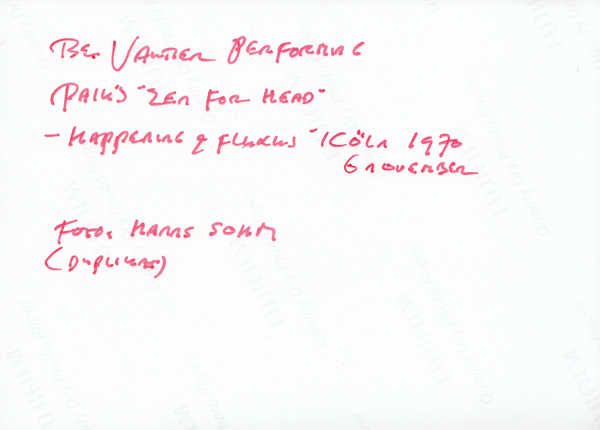 Ben Vautier Performing
Paik's "Zen for Head"
- Happening & Fluxus" Köln 1970
6 november
Foto. Hanns Sohm
(Duplikat)
FUJIFILM
Quality Dry Photo Paper